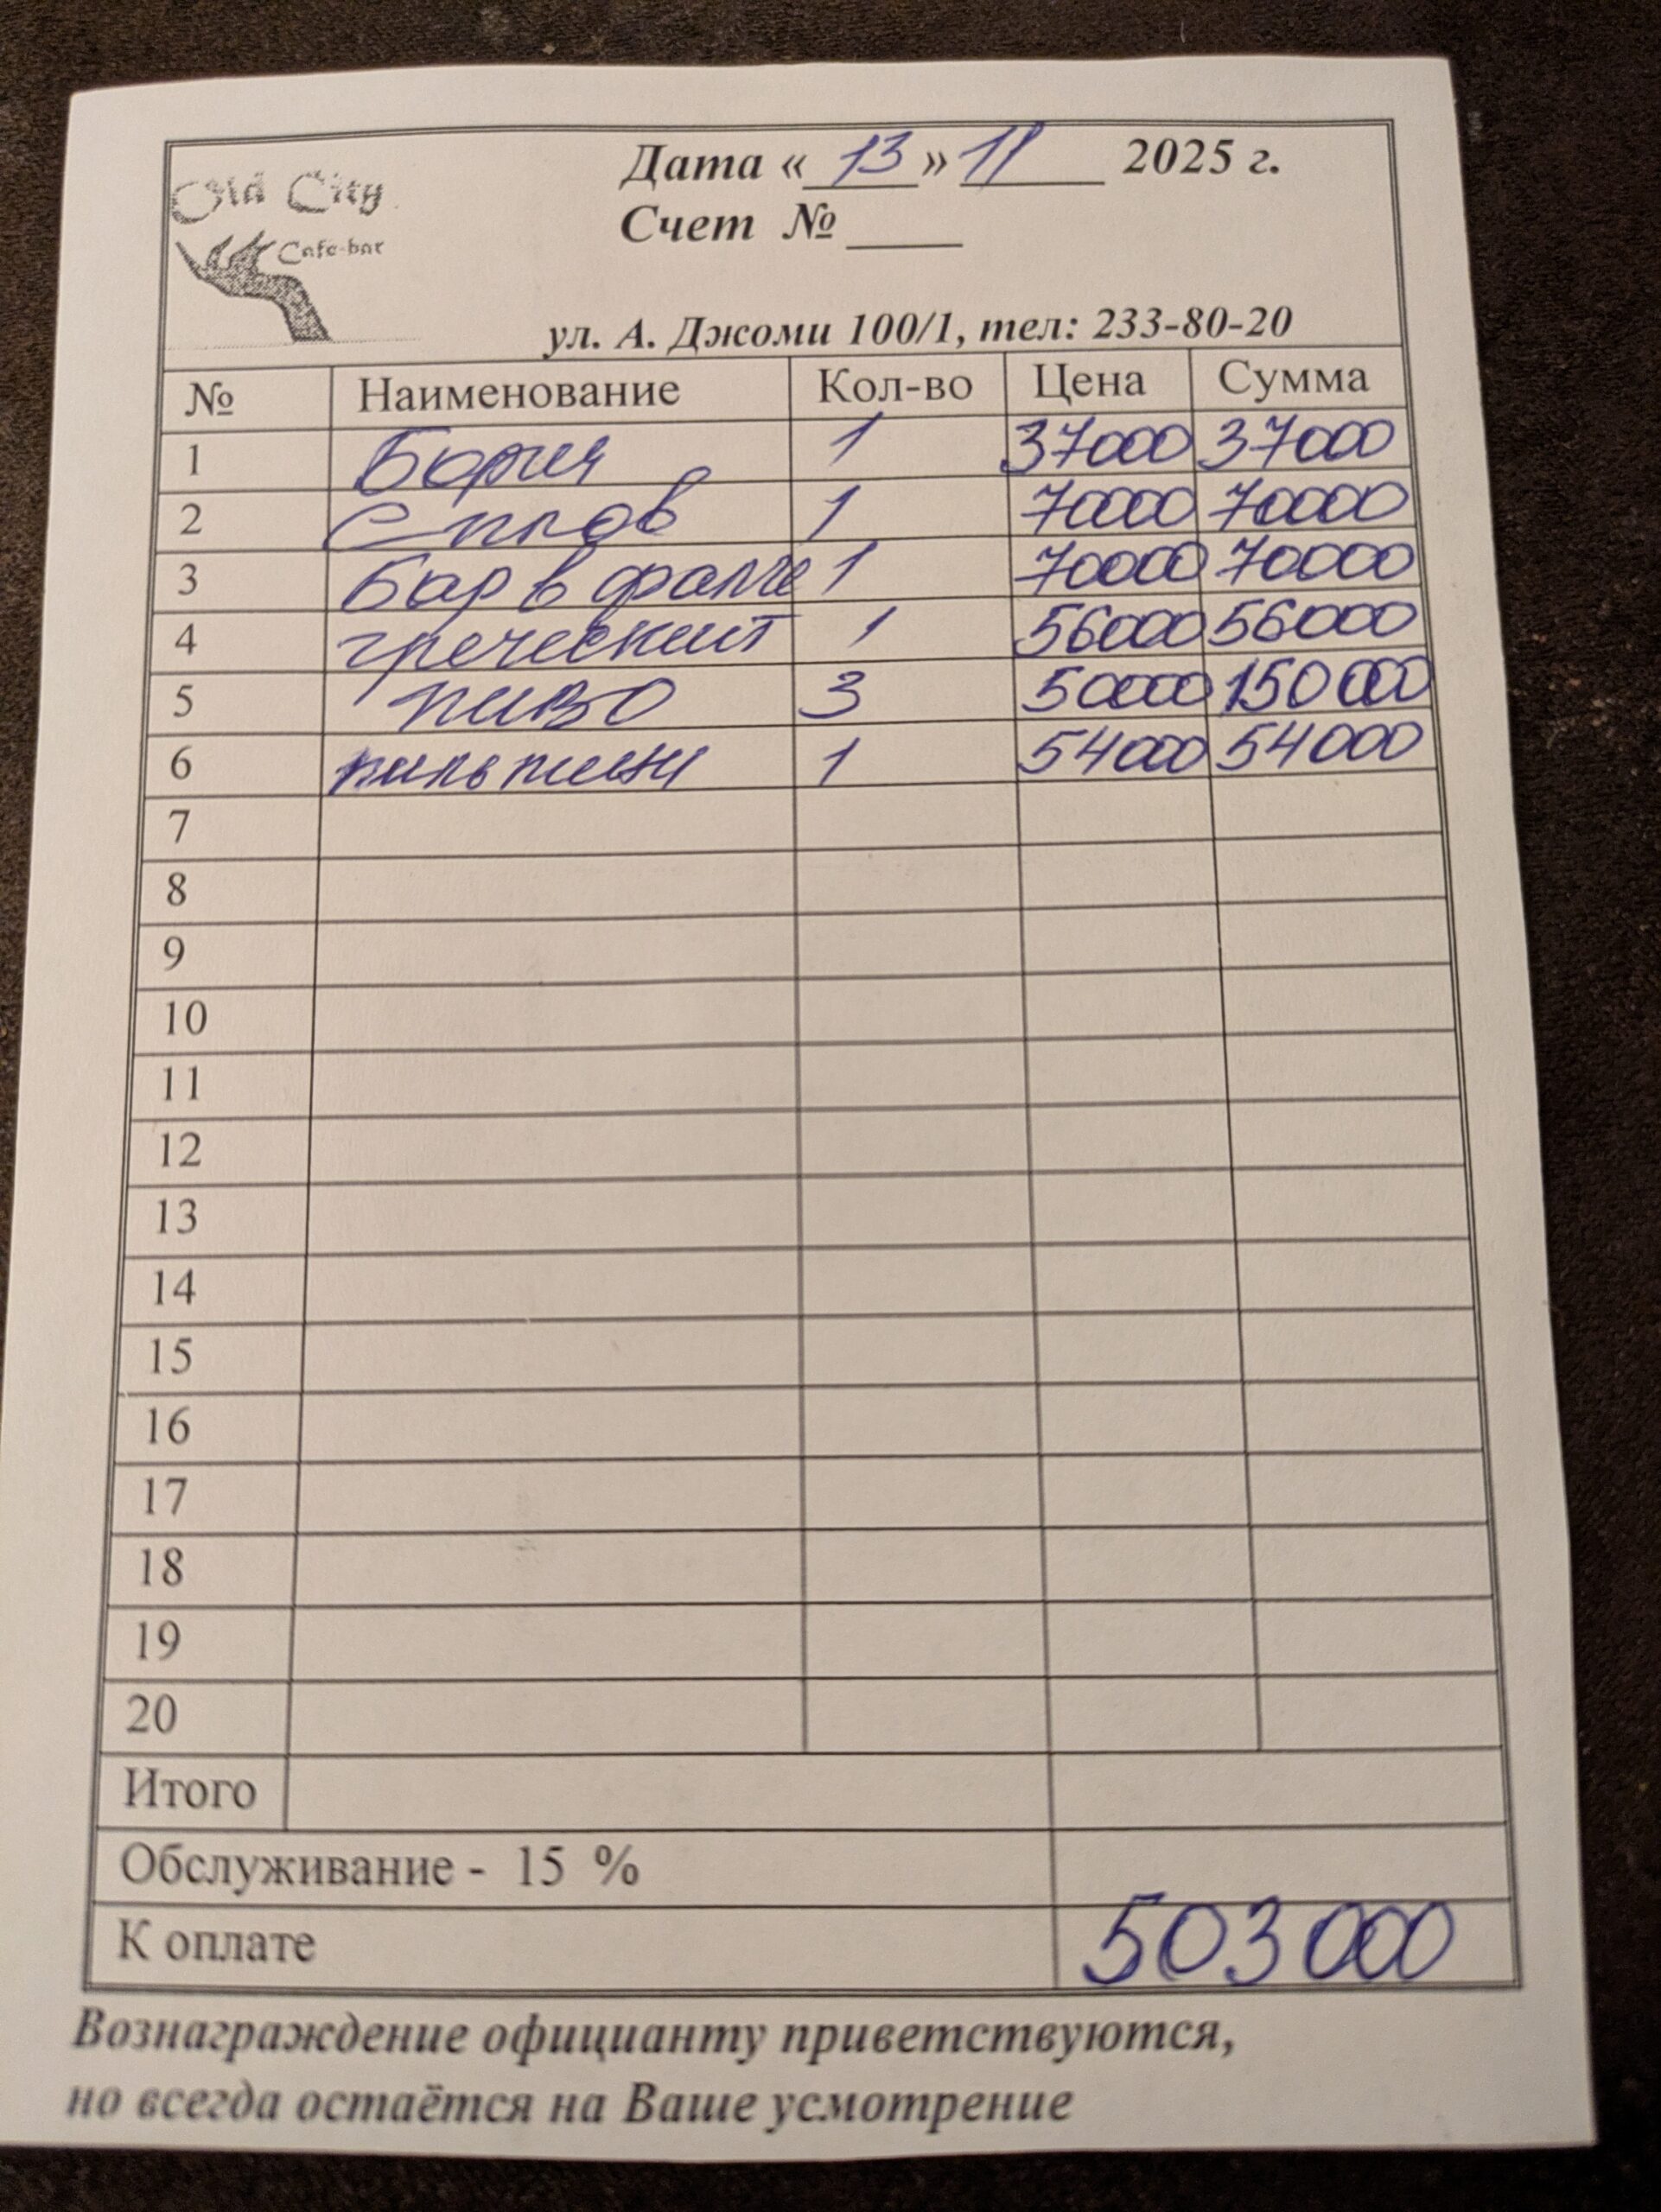 Old City
Cafe-bar
Дата « 13 » 11 2025 г.
Счет № ____
ул. А. Джоми 100/1, тел: 233-80-20
№ Наименование Кол-во Цена Сумма
1 Борщ 1 37000 37000
2 1 70000 70000
3 Бар в фолге 1 70000 70000
4 греческий 1 56000 56000
5 пиво 3 50000 150000
6 1 54000 54000
7
8
9
10
11
12
13
14
15
16
17
18
19
20
Итого
Обслуживание - 15 %
К оплате 503000
Вознаграждение официанту приветствуются,
но всегда остаётся на Ваше усмотрение